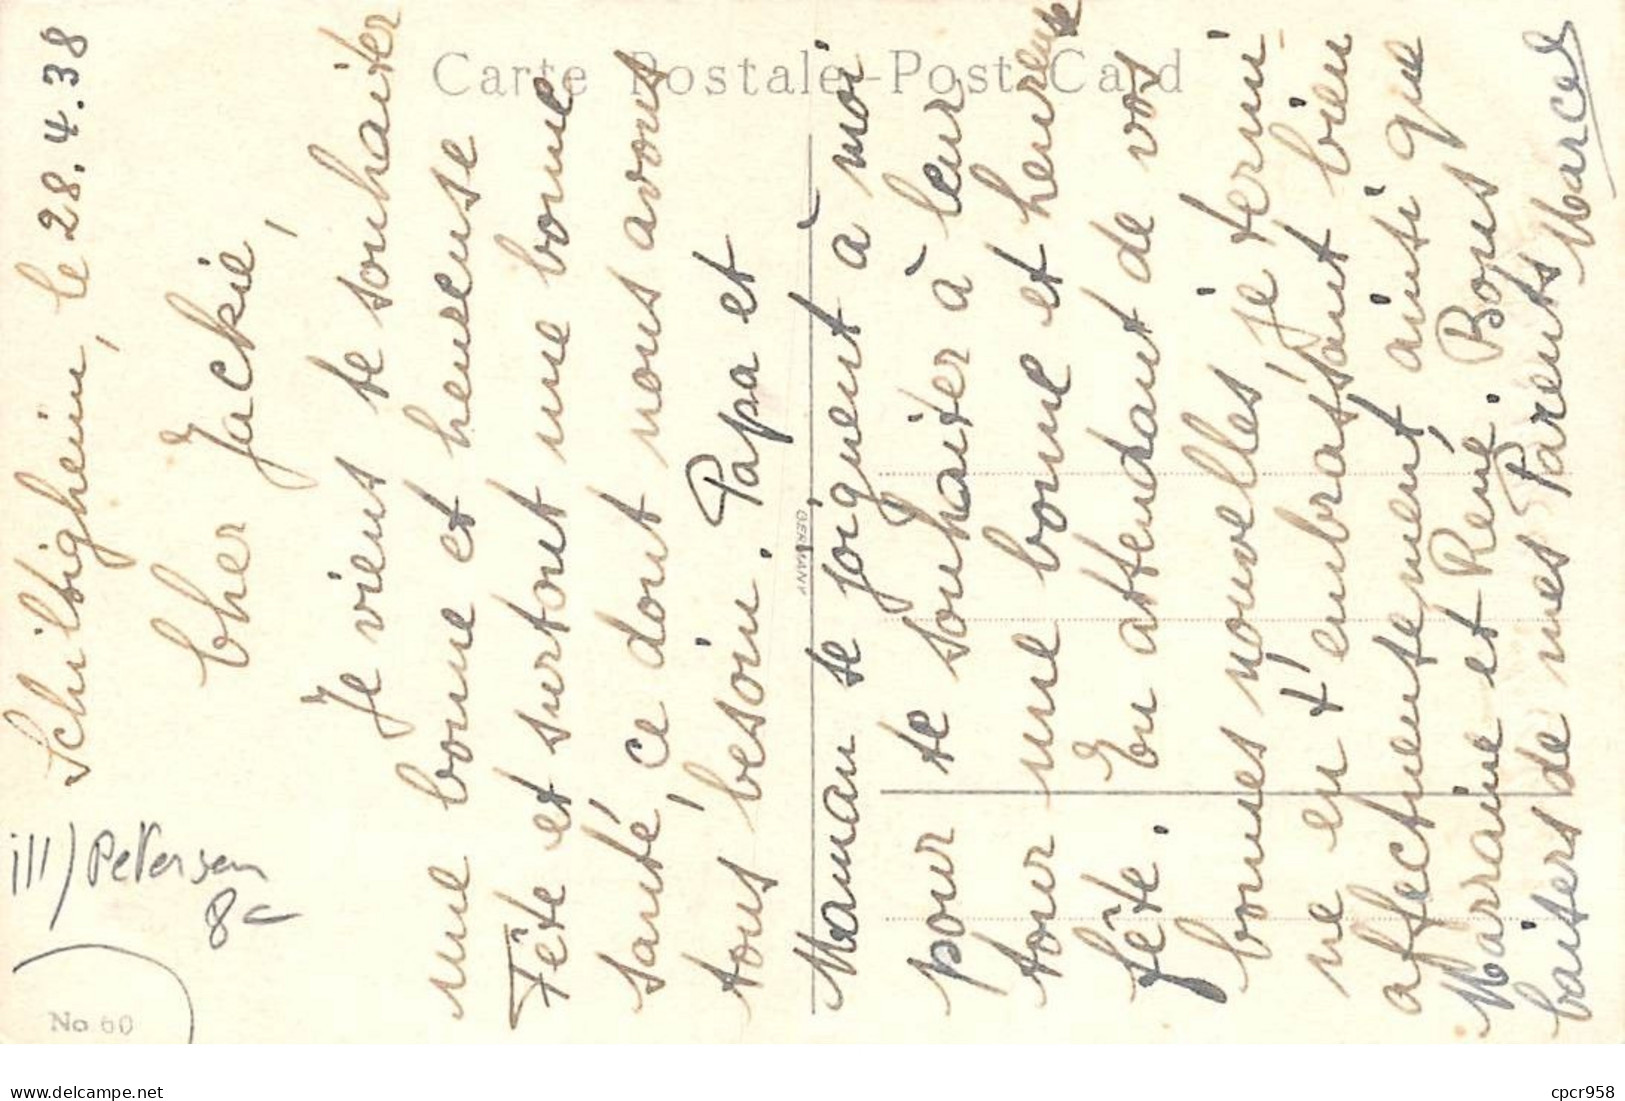 Carte Postale - Post Card
Schiltigheim, le 28.4.38
Cher Jackié,
Je viens te souhaiter
une bonne et heureuse
Fête et surtout une bonne
santé, ce dont nous avons
tous besoin. Papa et
Maman se joignent à moi
pour te souhaiter à leur
tour une bonne et heureuse
fête. En attendant de vos
bonnes nouvelles je termi-
ne en t'embrassant bien
affectueusement ainsi que
Marraine et René. Bons
baisers de mes Parents Marcel
ill) Petersen
8-
No 60
GERMANY
www.delcampe.net
cpcr958